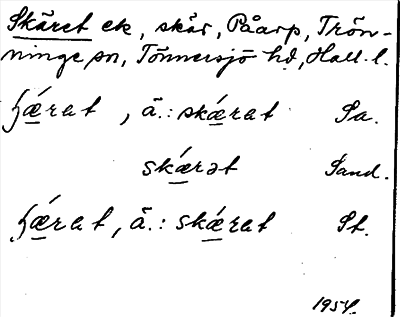 Skäret ek, skär, Påarp, Trön-
ninge sn, Tönnersjö hd, Hall. l.
ɧǽrat, ä.: skǽrat Sa.
skǽrət Sand.
ɧǽrat, ä.: skǽrat St.
1954.